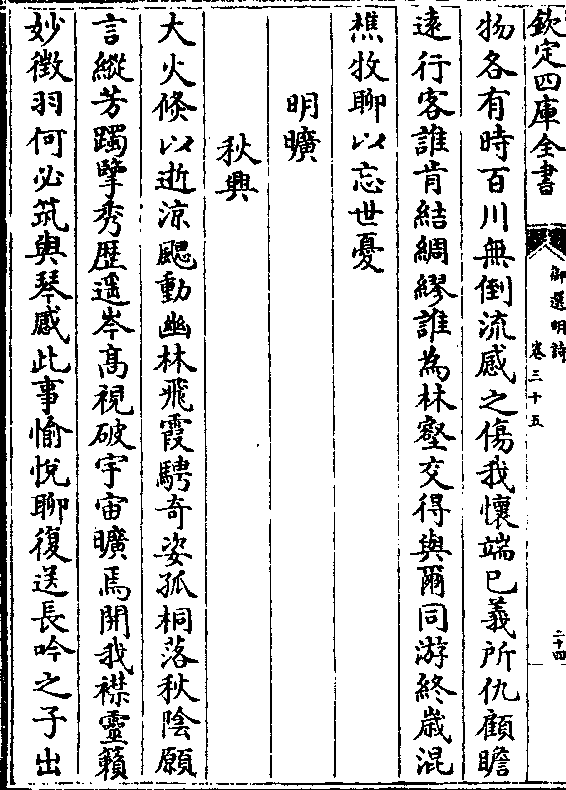 欽定四庫全書
御選明詩
卷三十五
二十四
物各有時百川無倒流感之傷我懷端已義所仇顧瞻
遠行客誰肯結綢繆誰為林壑交得與爾同游終歲混
樵牧聊以忘世憂
明曠
秋興
大火倏以逝涼颸動幽林飛霞騁奇姿孤桐落秋陰願
言縱芳躅擥秀歴遥岑高視破宇宙曠焉開我襟靈籟
妙徵羽何必筑與琴感此事愉悅聊復送長吟之子出